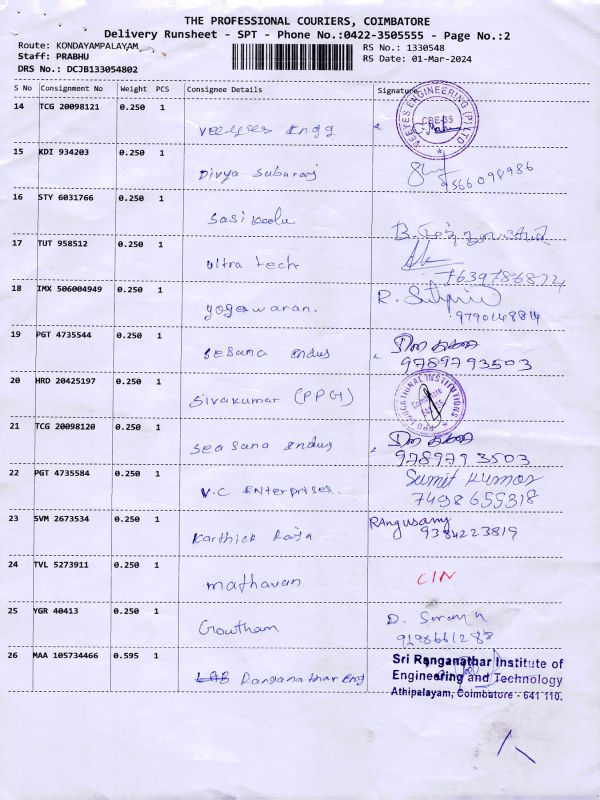 THE PROFESSIONAL COURIERS, COIMBATORE
Delivery Runsheet - SPT - Phone No.:0422-3505555 - Page No.:2
Route: KONDAYAMPALAYAM
Staff: PRABHU
DRS No.: DCJB133054802
RS No.: 1330548
RS Date: 01-Mar-2024
S No Consignment No Weight PCS Consignee Details Signature
14 TCG 20098121 0.250 1
Veeyes Engg
VEEYES ENGINEERING (P) LTD
CBE-35
15 KDI 934203 0.250 1
Divya Subaraj
9566098986
16 STY 6031766 0.250 1
Sasi
17 TUT 958512 0.250 1
ultra tech
7639786872
18 IMX 506004949 0.250 1
yogeswaran.
R.
9790148814
19 PGT 4735544 0.250 1
Sesana Indus
9789793503
20 HRD 20425197 0.250 1
Sivakumar (PPG)
PPG EDUCATIONAL INSTITUTIONS
21 TCG 20098120 0.250 1
Seasana Indus
9789793503
22 PGT 4735584 0.250 1
V.C Enterprises.
Sumit Kumar
7498655318
23 SVM 2673534 0.250 1
Karthick Raja
RAngusamy
9384223819
24 TVL 5273911 0.250 1
mathavan
25 YGR 40413 0.250 1
Goutham
D.
9198661288
26 MAA 105734466 0.595 1
Ranganathar Eng
Sri Ranganathar Institute of
Engineering and Technology
Athipalayam, Coimbatore - 641 110.